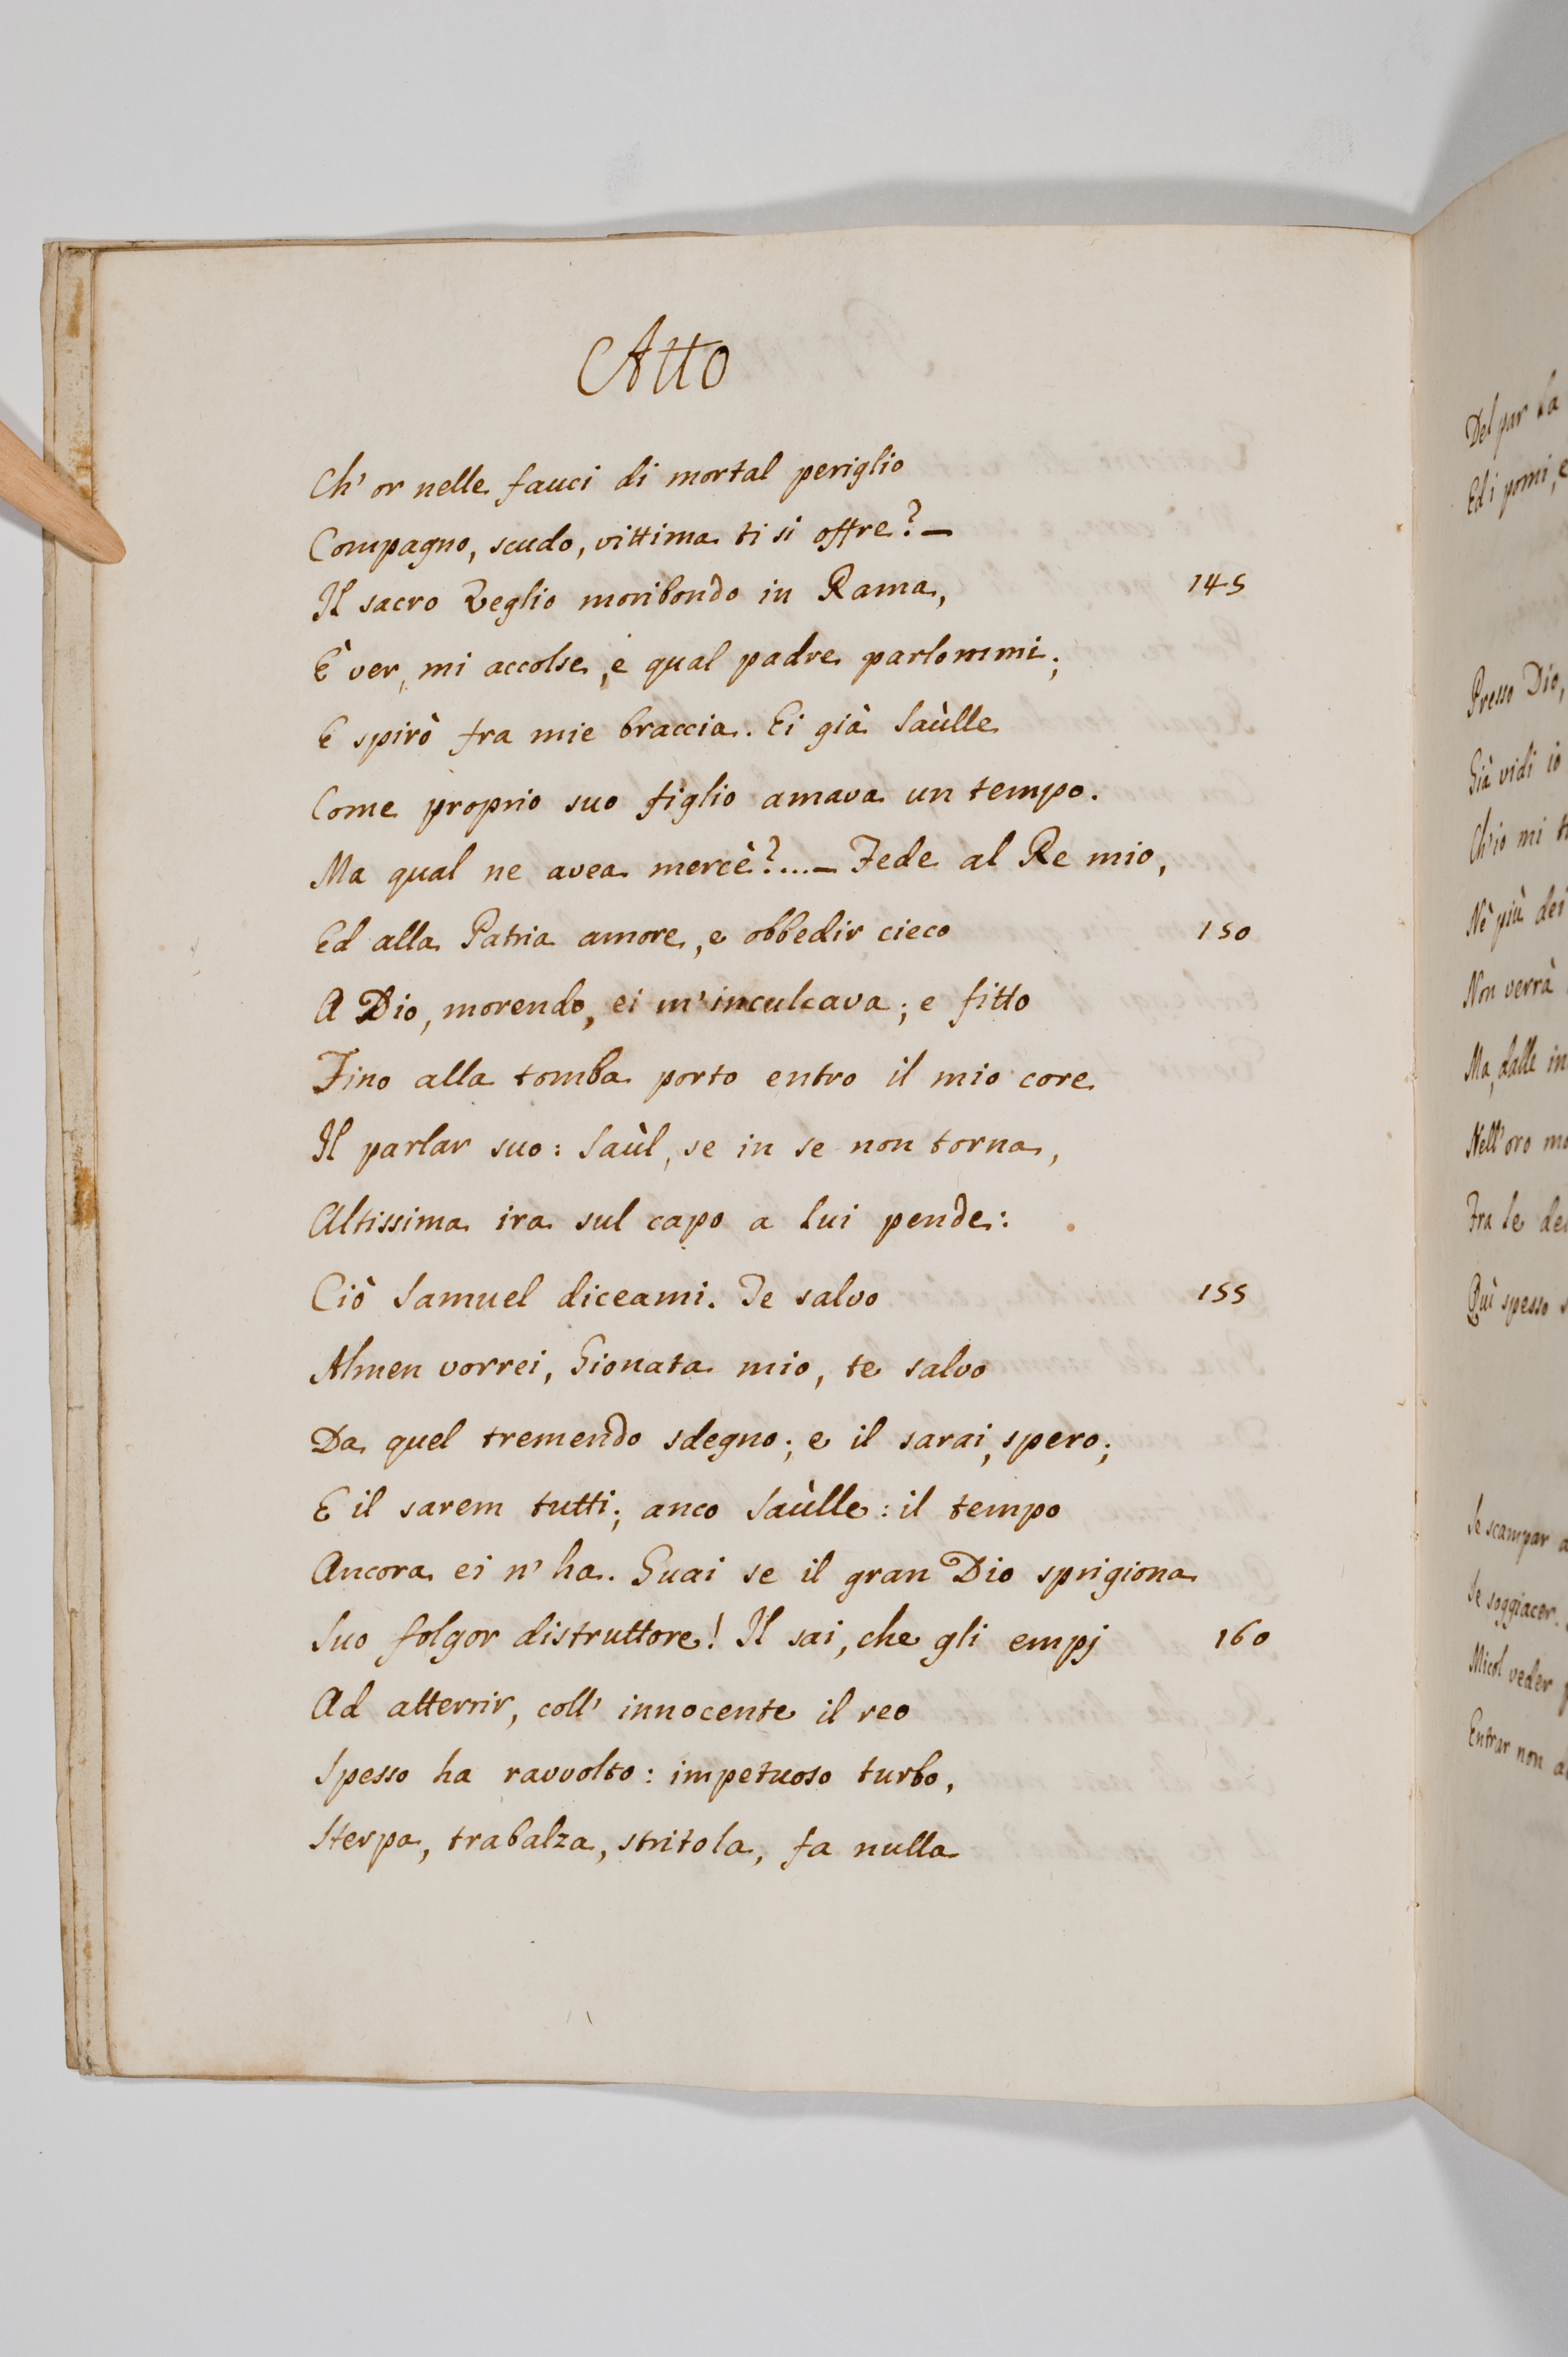 Atto
Ch' or nelle fauci di mortal periglio
Compagno, scudo, vittima ti si offre? —
Il sacro Veglio moribondo in Rama, 145
È ver, mi accolse, e qual padre parlommi;
E spirò fra mie braccia. Ei già Saùlle
Come proprio suo figlio amava un tempo.
Ma qual ne avea mercè?....— Fede al Re mio,
Ed alla Patria amore, e obbedir cieco 150
A Dio, morendo, ei m'inculcava; e fitto
Fino alla tomba porto entro il mio core
Il parlar suo: Saùl, se in se non torna,
Altissima ira sul capo a lui pende:
Ciò Samuel diceami. Te salvo 155
Almen vorrei, Gionata mio, te salvo
Da quel tremendo sdegno; e il sarai, spero;
E il sarem tutti; anco Saùlle: il tempo
Ancora ei n' ha. Guai se il gran Dio sprigiona
Suo folgor distruttore! Il sai, che gli empj 160
Ad atterrir, coll' innocente il reo
Spesso ha ravvolto: impetuoso turbo,
Sterpa, trabalza, stritola, fa nulla
Del par la
Ed i pomi, e
Presso Dio,
Già vidi io
Ch'io mi
Nè più dei
Non verrà
Ma, dalle in
Nell'oro
Fra le
Quì spesso
Se scampar
Se soggiacer
Micol veder
Entrar non